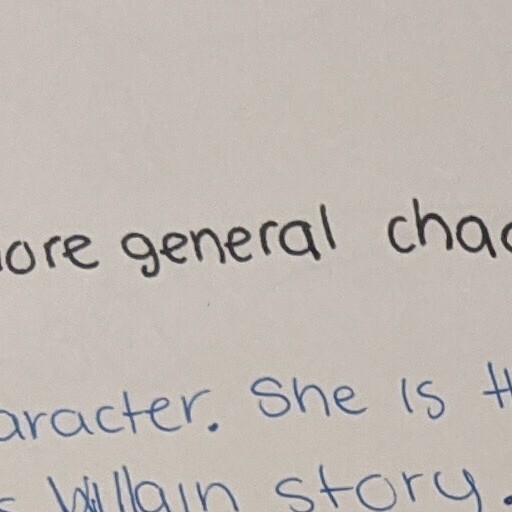 ore general chao
aracter. She is th
s Villain story.